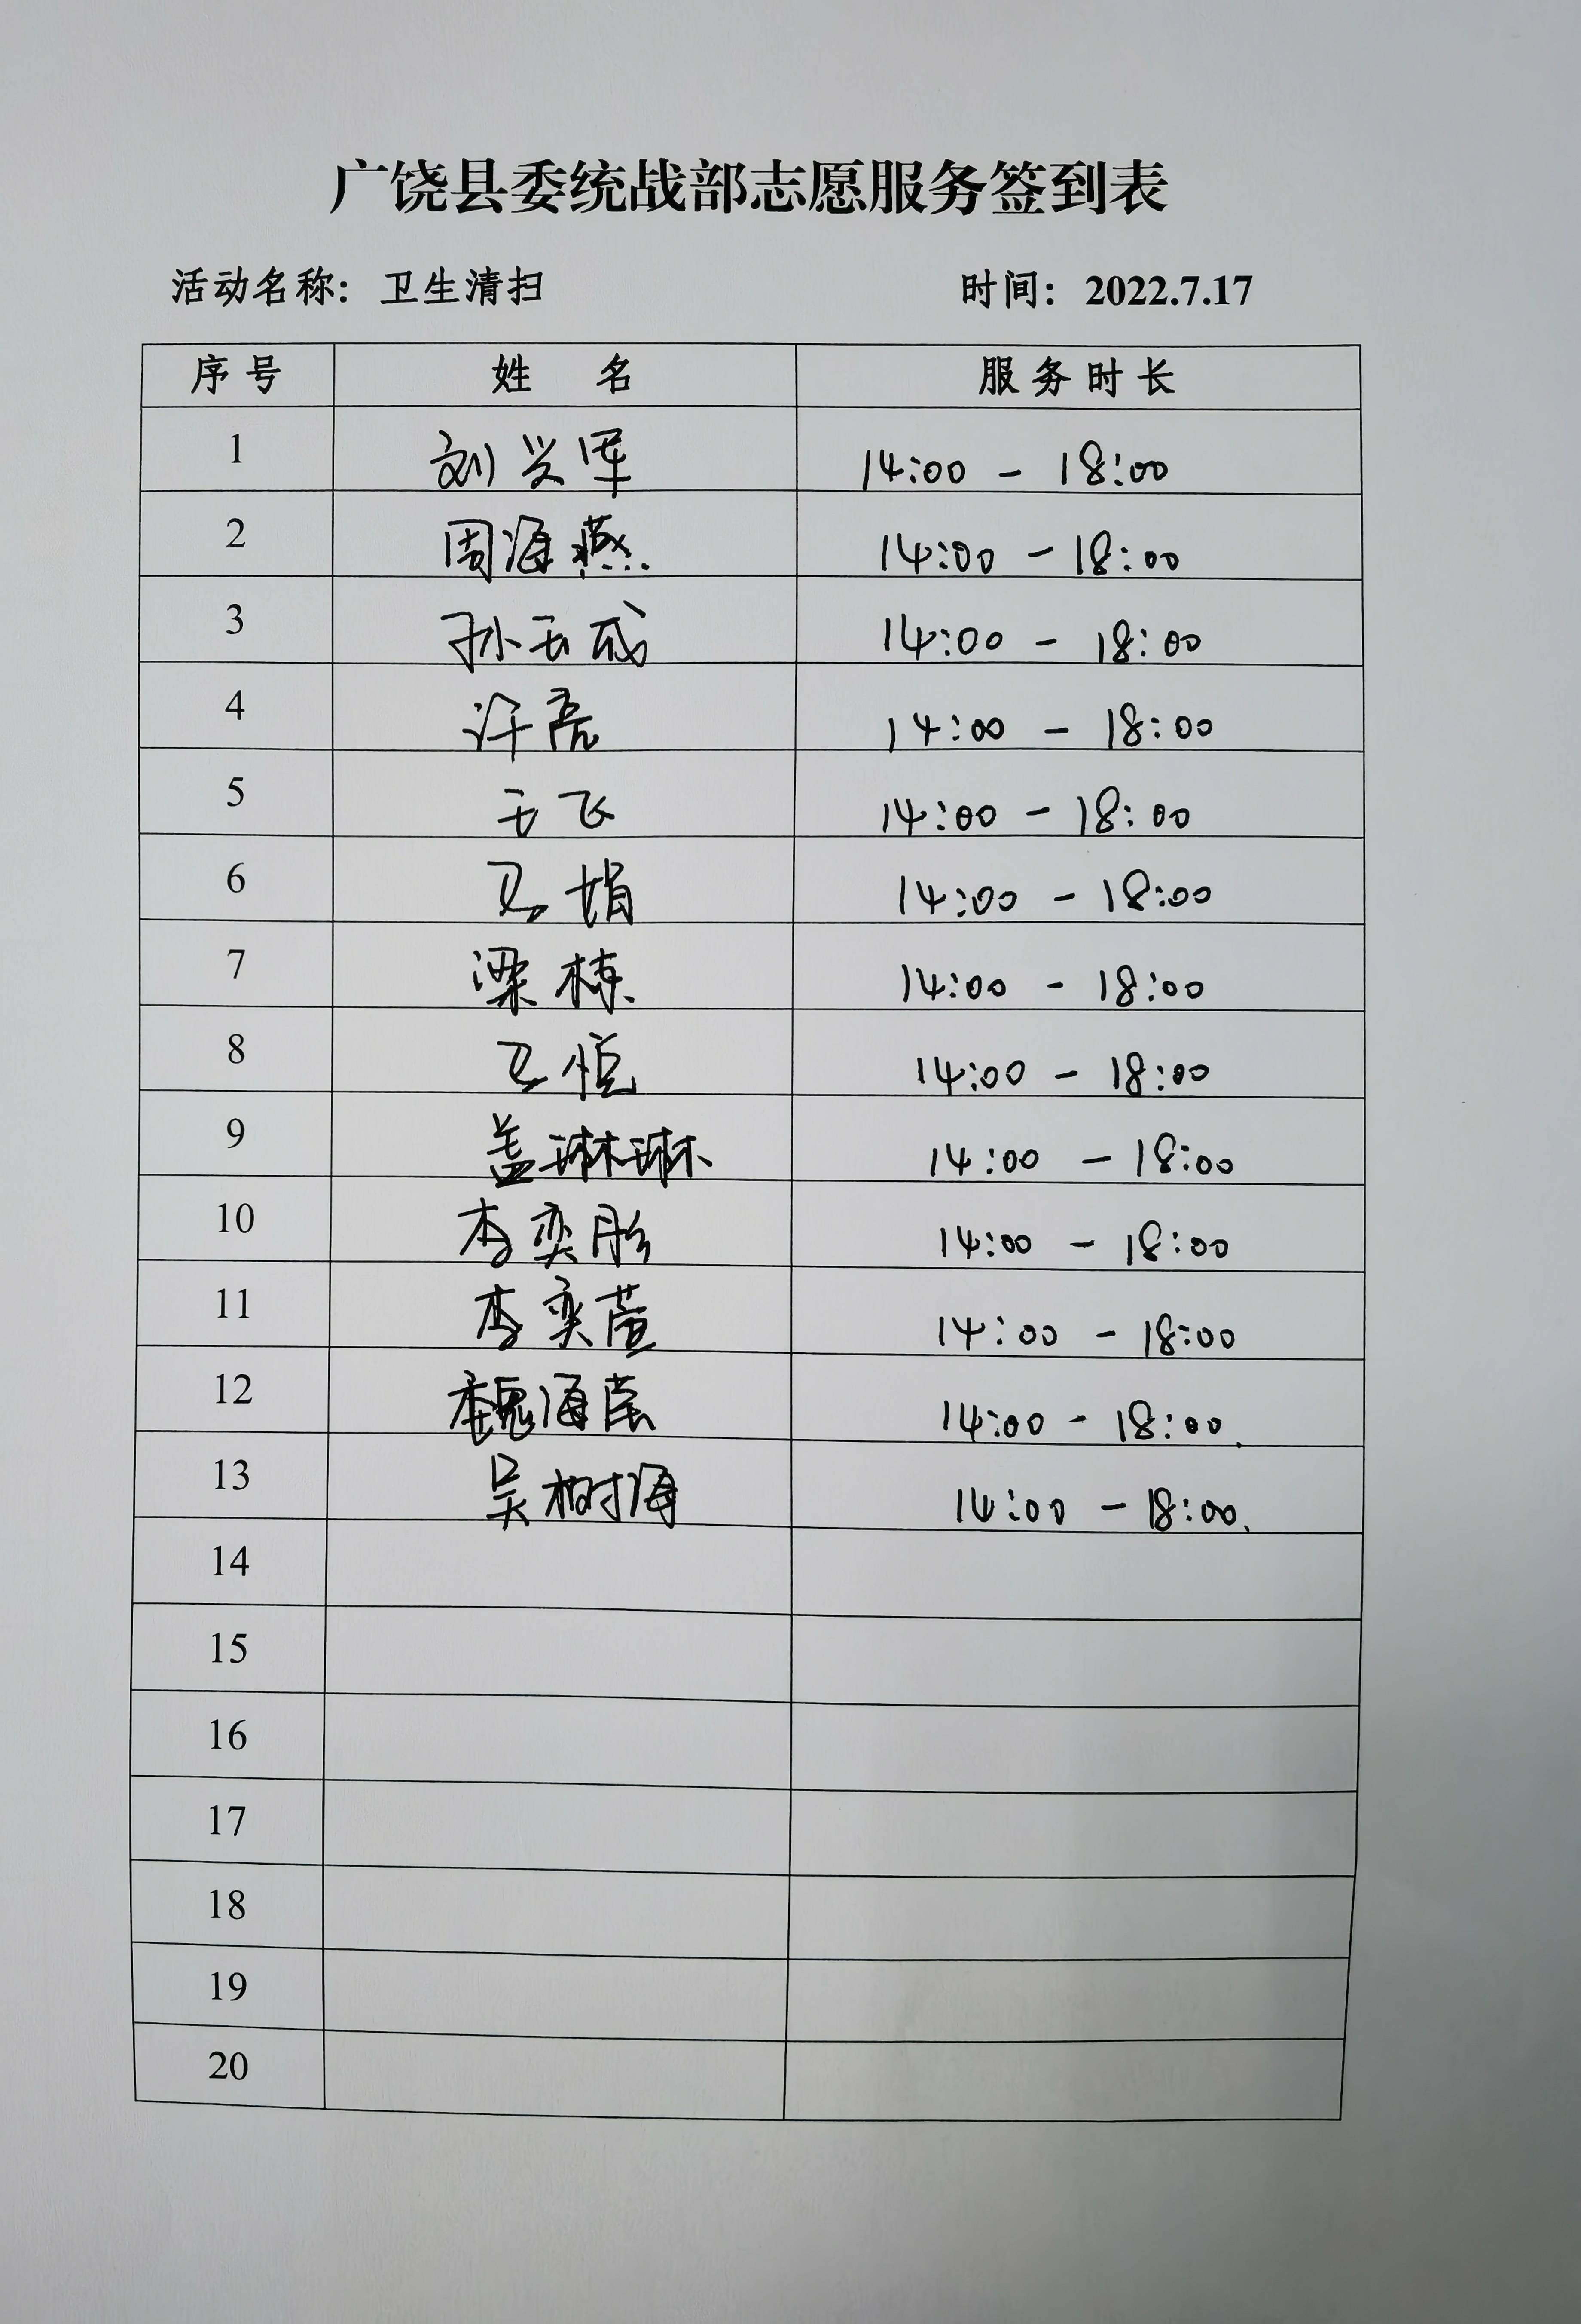 广饶县委统战部志愿服务签到表
活动名称：卫生清扫 时间：2022.7.17
序号 姓 名 服务时长
1 刘兴军 14:00 - 18:00
2 周海燕 14:00 - 18:00
3 孙玉成 14:00 - 18:00
4 许亮 14:00 - 18:00
5 王飞 14:00 - 18:00
6 卫娟 14:00 - 18:00
7 梁栋 14:00 - 18:00
8 卫恒 14:00 - 18:00
9 盖琳琳 14:00 - 18:00
10 李奕彤 14:00 - 18:00
11 李奕萱 14:00 - 18:00
12 魏海 14:00 - 18:00.
13 吴树海 14:00 - 18:00.
14
15
16
17
18
19
20